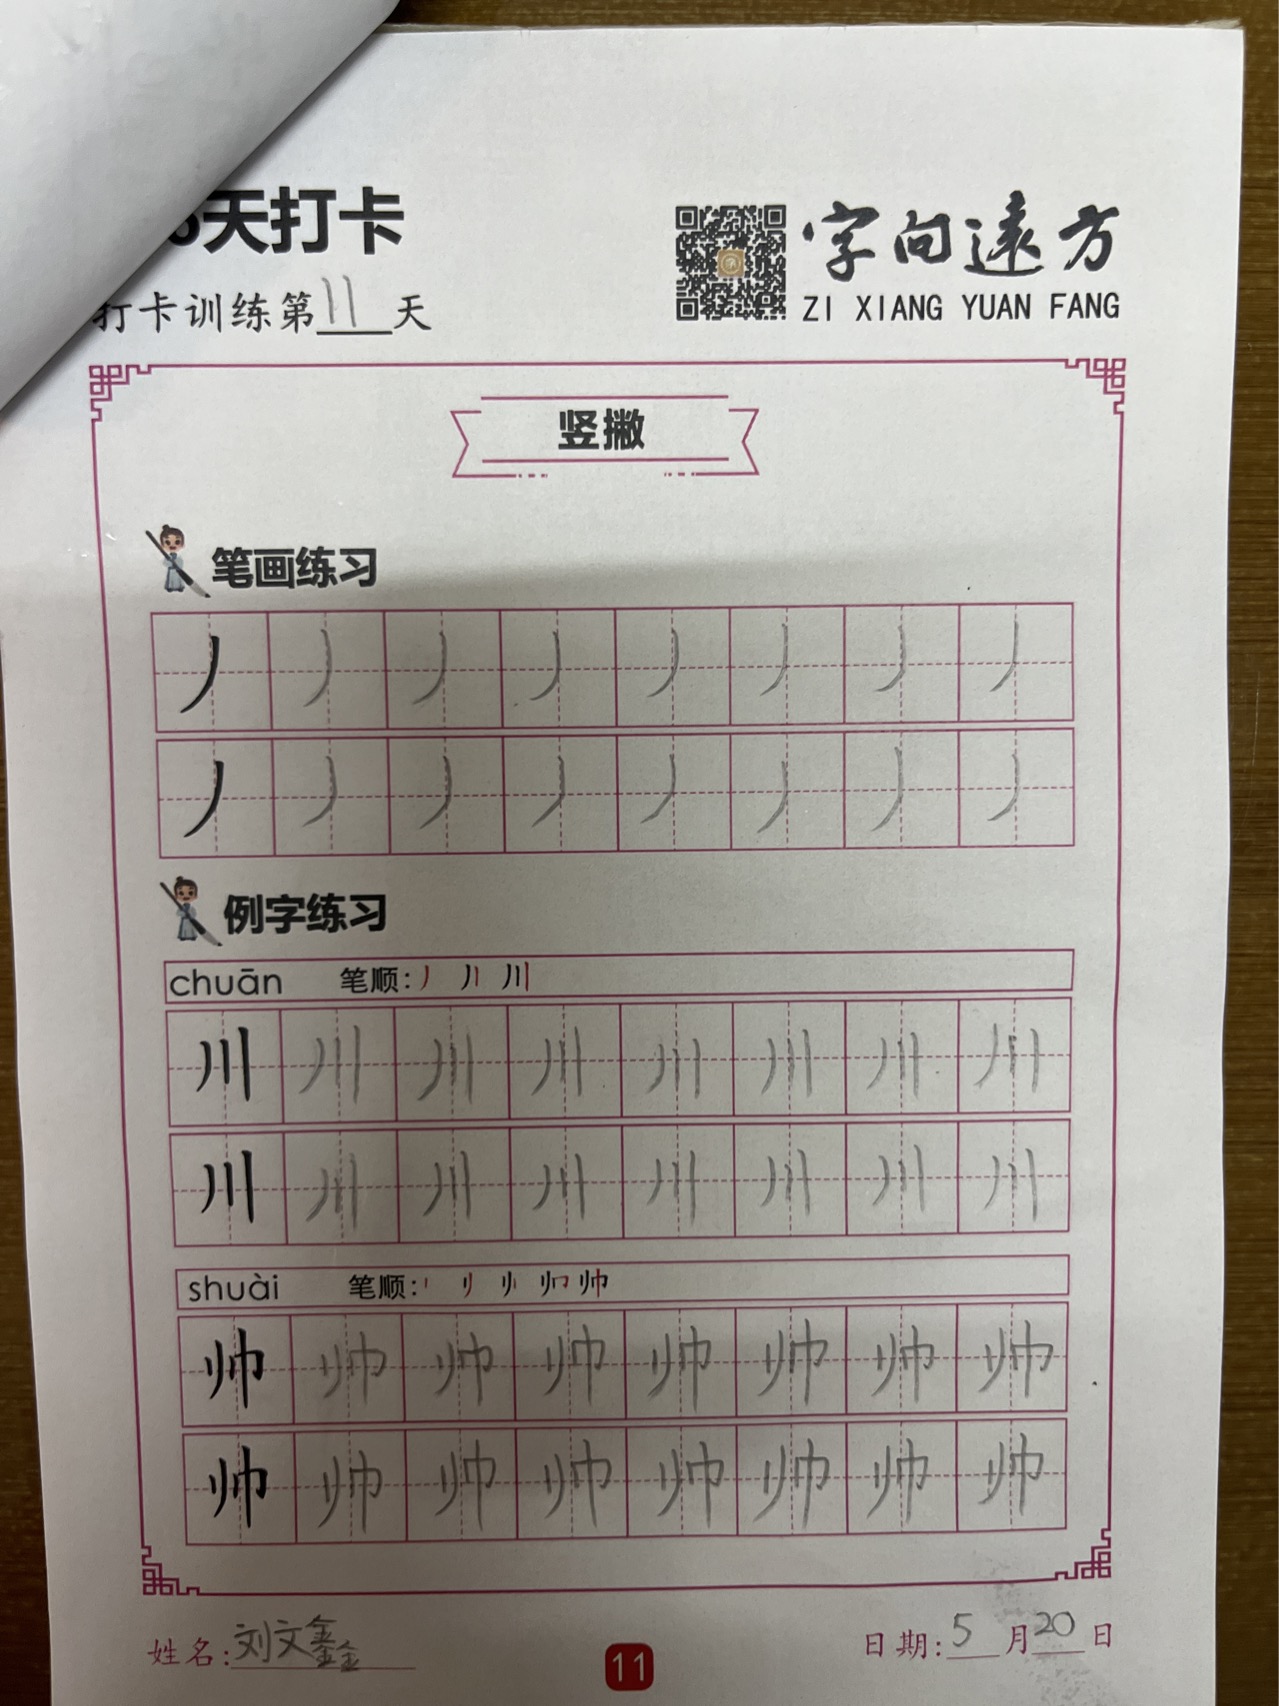 天打卡
字向遠方
打卡训练第11天
ZI XIANG YUAN FANG
竖撇
笔画练习
丿丿丿丿丿丿丿丿
丿丿丿丿丿丿丿丿
例字练习
chuān 笔顺: 丿 丿丨 川
川川川川川川川川
川川川川川川川川
shuài 笔顺: 帅
帅帅帅帅帅帅帅帅
帅帅帅帅帅帅帅帅
姓名:刘文鑫
日期:5月20日
11